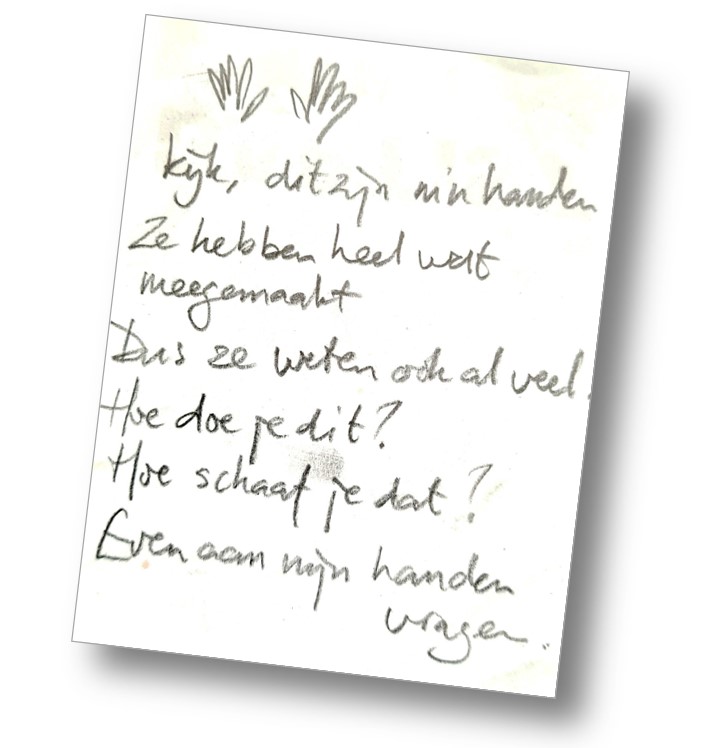 kijk, dit zijn m'n handen
Ze hebben heel wat
meegemaakt
Dus ze weten ook al veel.
Hoe doe je dit?
Hoe schaaf je dat?
Even aan mijn handen
vragen.